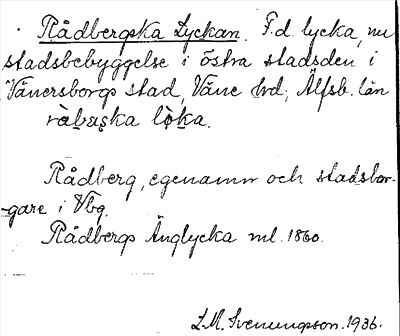 Rådbergska Lyckan. F.d. lycka, nu
stadsbebyggelse i östra stadsden i
Vänersborgs stad, Väne hd; Älfsb. län
ràbaska lỳka.
Rådberg, egenamn och stadsbor-
-gare i Vbg.
Rådbergs Änglycka ml. 1860.
L.M. Svenungson. 1936.